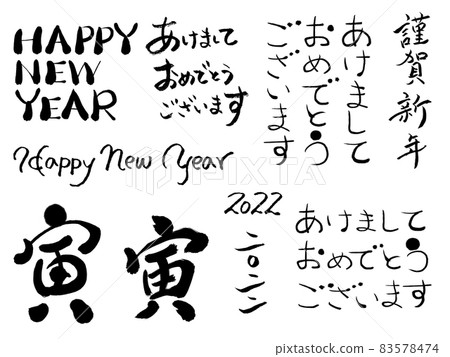 HAPPY
NEW
YEAR
あけまして
おめでとう
ございます
あけまして
おめでとう
ございます
謹賀新年
Happy New Year
寅
寅
2022
二〇二二
あけまして
おめでとう
ございます
pixta.jp - 83578474